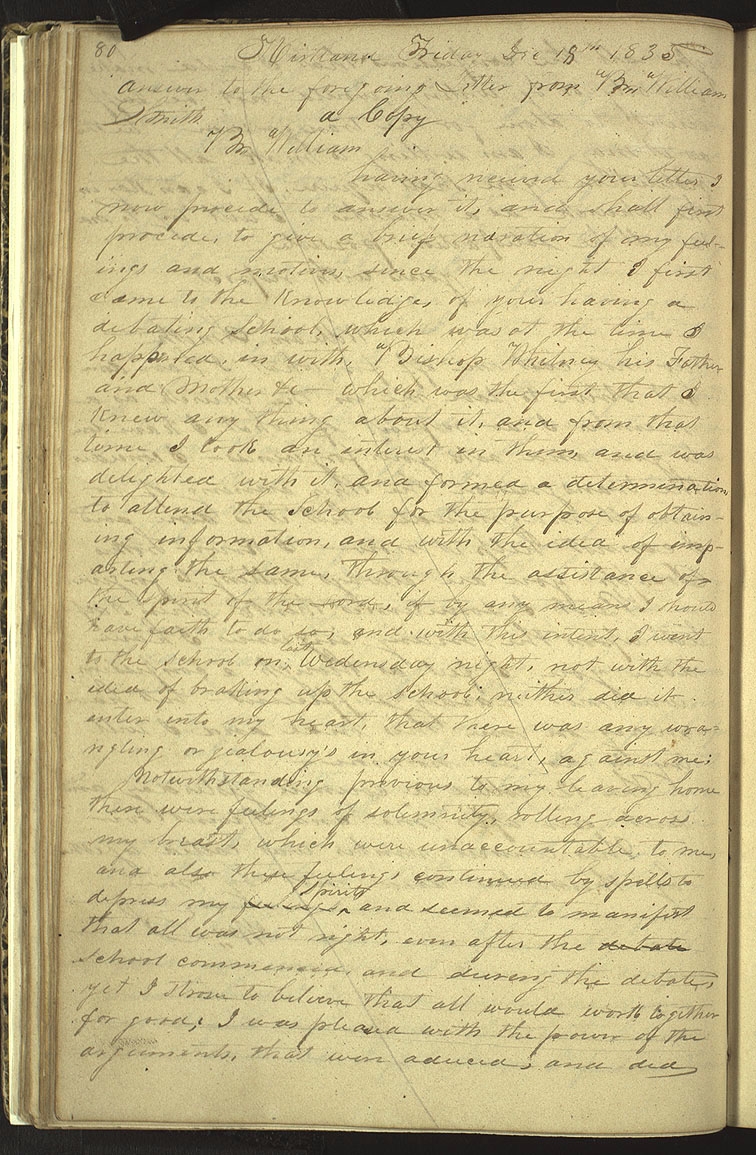 80 Kirtland Friday Dec 18th 1835
answer to the foregoing Letter from Br. William
Smith a Copy
Br. William
having received your letter I
now procede to answer it, and shall first
procede, to give a brief naration of my feel-
ings and motives, since the night I first
came to the knowledge, of your having a
debating School, which was at the time I
happened in with, Bishop Whitney his Father
and Mother &c— which was the first that I
knew any thing about it, and from that
time I took an interest in them, and was
delighted with it, and formed a determination,
to attend the School for the purpose of obtain-
ing information, and with the idea of imp-
arting the same, through the assistance of
the spirit of the Lord, if by any means I should
have faith to do so; and with this intent, I went
to the school on last Wedensday night, not with the
idea of braking up the school, neither did it
enter into my heart, that there was any wra-
ngling or jealousy's in your heart, against me;
Notwithstanding previous to my leaving home
there were feelings of solemnity, rolling across
my breast, which were unaccountable to me,
and also these feelings continued by spells to
depress my feelings spirits and seemed to manifest
that all was not right, even after the debate
school commenced, and during the debate,
yet I strove to believe that all would work together
for good; I was pleased with the power of the
arguments, that were aduced, and did